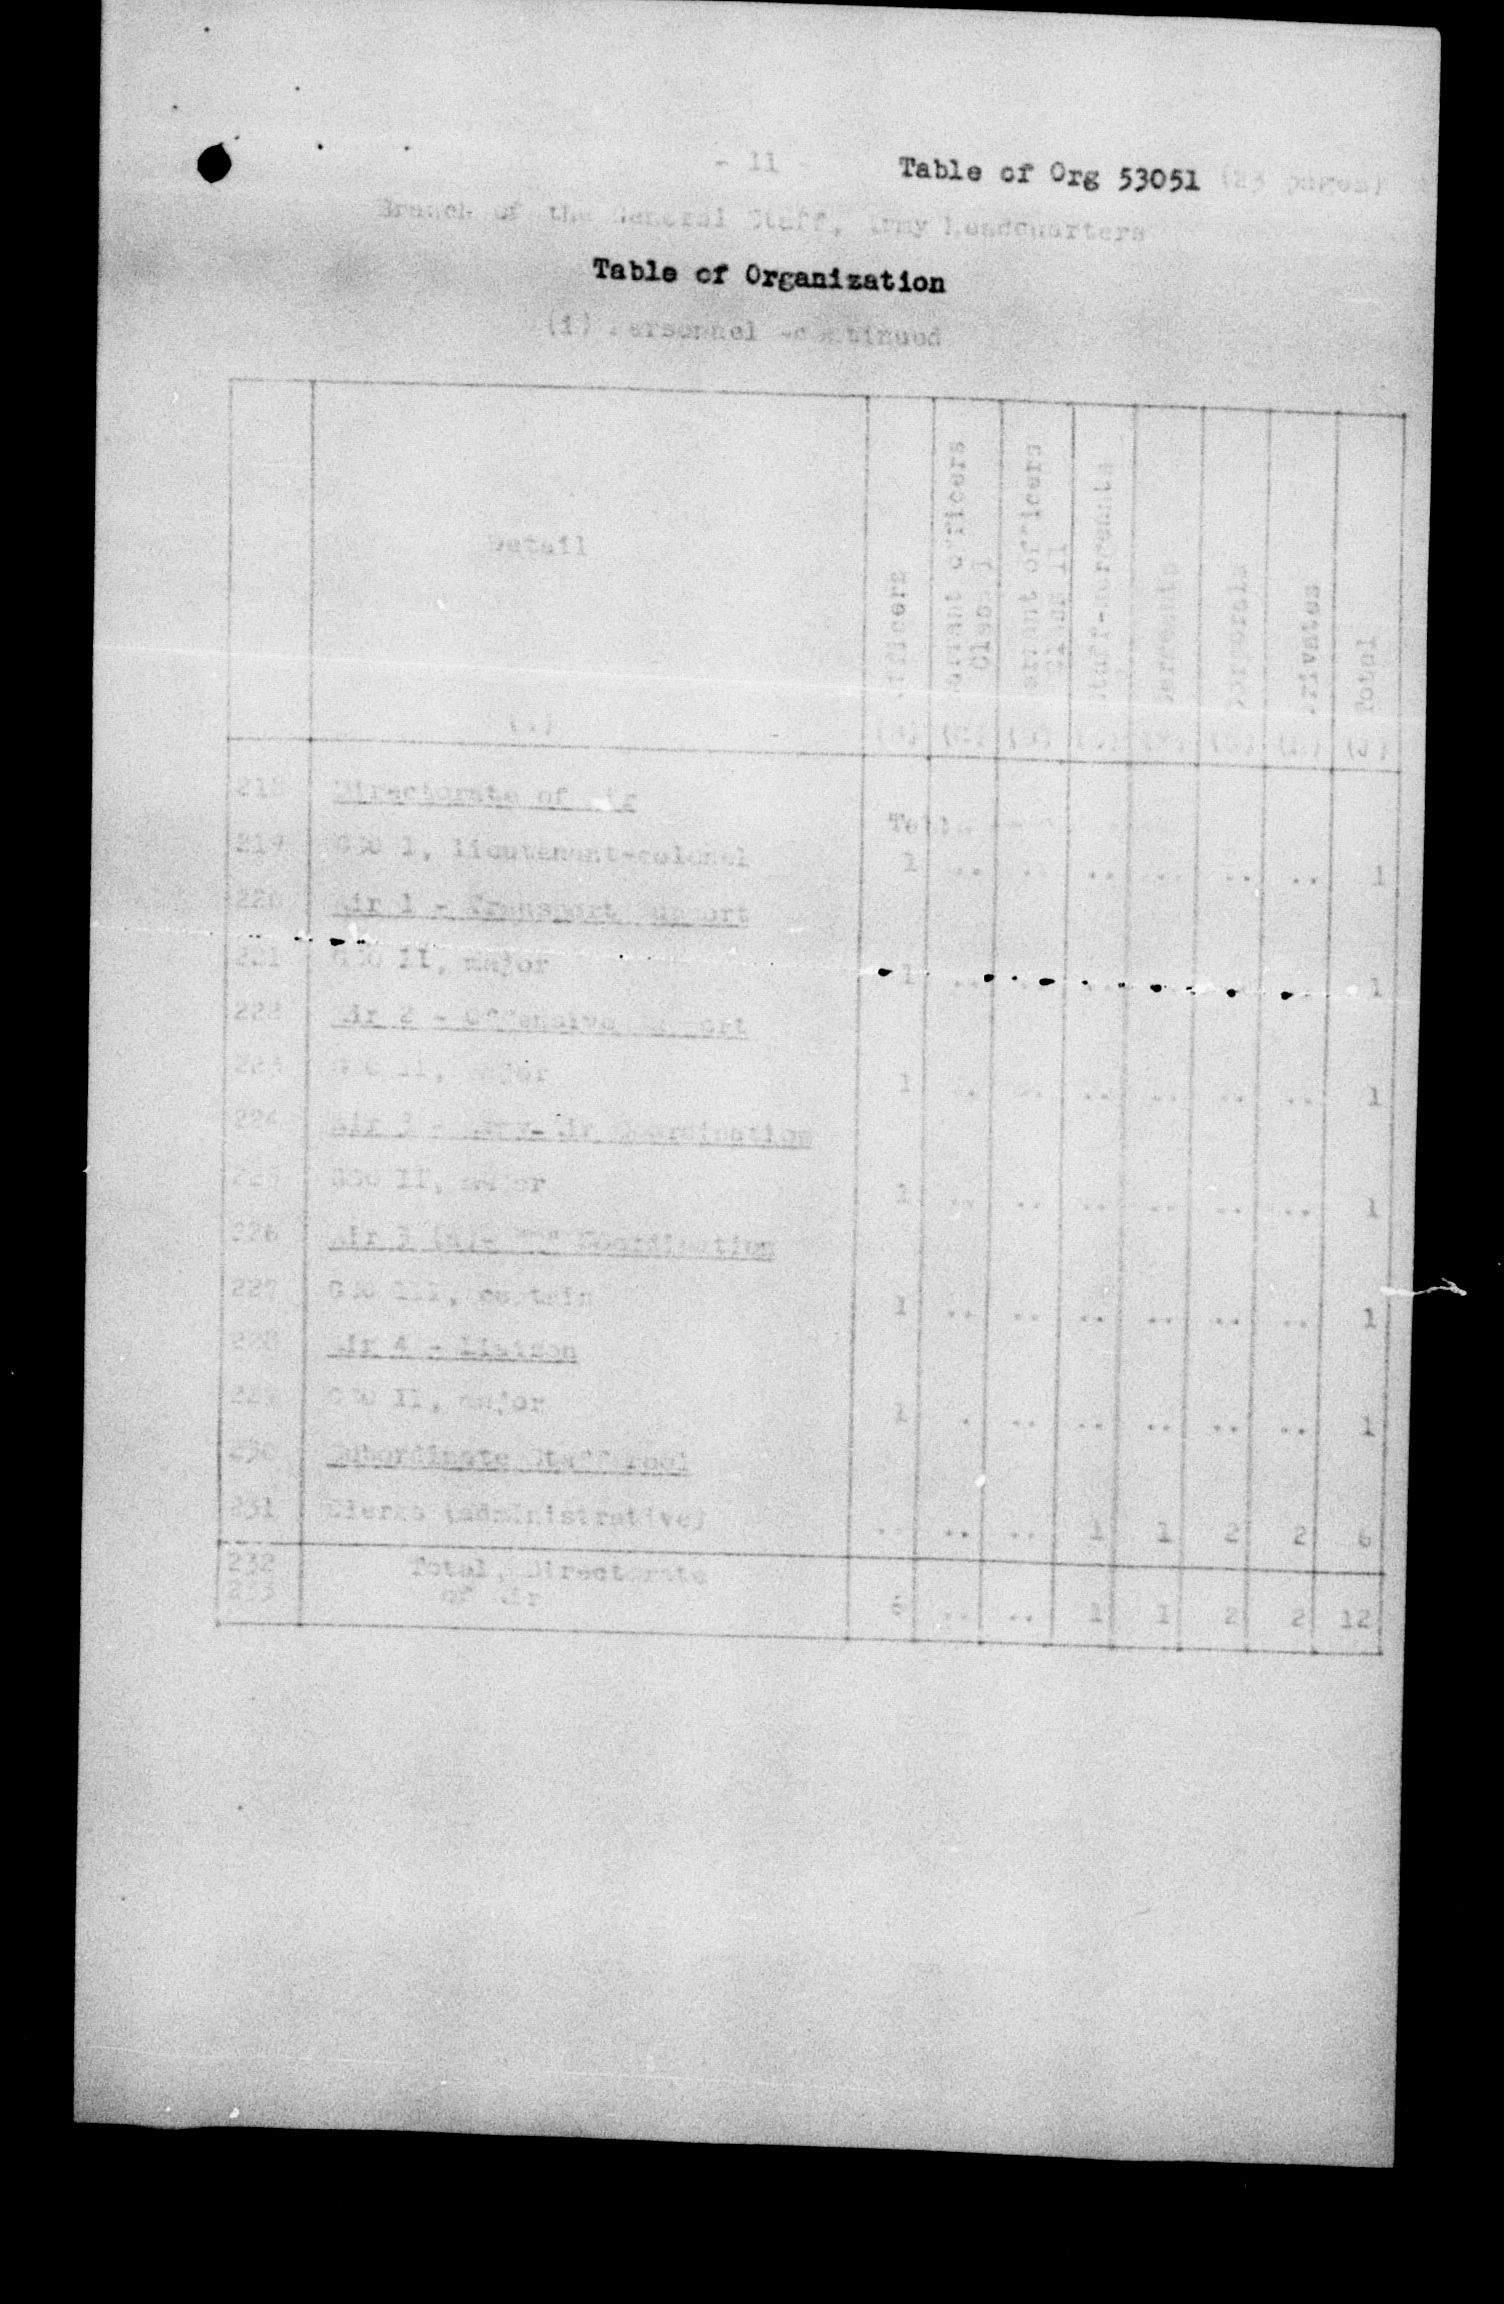 - 11 - Table of Org 53051 (23 pages)
Branch of the General Staff, Army Headquarters
Table of Organization
(i) Personnel -continued
Detail
Officers
Warrant Officers Class I
Warrant Officers Class II
Staff-Sergeants
Sergeants
Corporals
Privates
Total
(J)
218 Directorate of Air
219 GSO I, lieutenant-colonel 1 .. .. .. .. .. .. 1
220 Air 1 - Transport Support
221 GSO II, major 1 .. 1
222 Air 2 - Offensive Support
223 GSO II, major 1 .. .. .. .. .. .. 1
224 Air 3 - Army-Air Coordination
225 GSO II, major 1 .. .. .. .. .. .. 1
226 Air 3 Coordination
227 GSO III, captain 1 .. .. .. .. .. .. 1
228 Air 4 - Liaison
229 GSO II, major 1 .. .. .. .. .. .. 1
230 Subordinate Staff Pool
231 Clerks (administrative) .. .. .. 1 1 2 2 6
232 Total, Directorate
233 of Air 6 .. .. 1 1 2 2 12